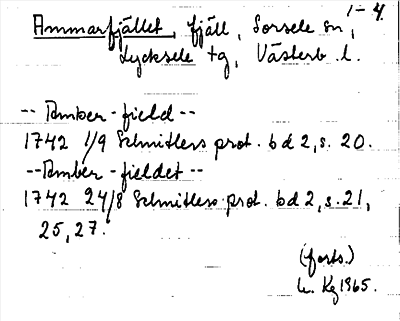 1-4
Ammarfjället, fjäll, Sorsele sn,
Lycksele tg, Västerb. l.
-- Amber-field --
1742 1/9 Schnitlers prot. bd 2, s. 20.
-- Amber-fieldet --
1742 24/8 Schnitlers prot. bd 2, s. 21,
25, 27.
(forts.)
Kg 1965.